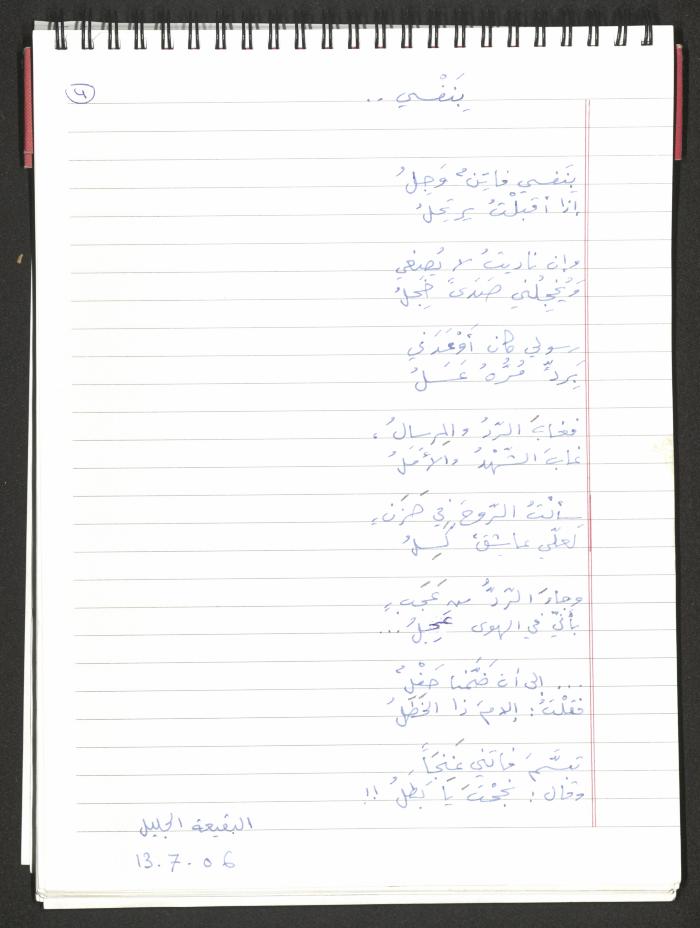 بَنَفْسي ..
٤
بِنَفسي فاتِنٌ وَجِلُ
إذا أقبلْتُ يرتَحِلُ
وإن ناديتُ لا يُصغي
وَيُخجِلُني صَدَىً خَجِلُ
رسولي كان أَوْعَدَني
بِرَدٍّ مُرُّهُ عَسَلُ
فغابَ الرّدُ والمِرسالُ،
غابَ الشَّهْدُ والأَمَلُ
سألْتُ الرّوحَ في حَزَنٍ،
لَعلّي عاشِقٌ كَسِلُ
وجاءَ الرّدُّ من عَجَبٍ
بأنّي في الهوى عَجِلُ ...
... إلى أن ضَمَّنا حَفْلٌ
فقلْتُ: إلامَ ذا الخَطَلُ
تبسَّمَ فاتني غَنَجَاً
وقال: نجحْتَ يا بَطَلُ !!
البقيعة الجليل
13.7.06